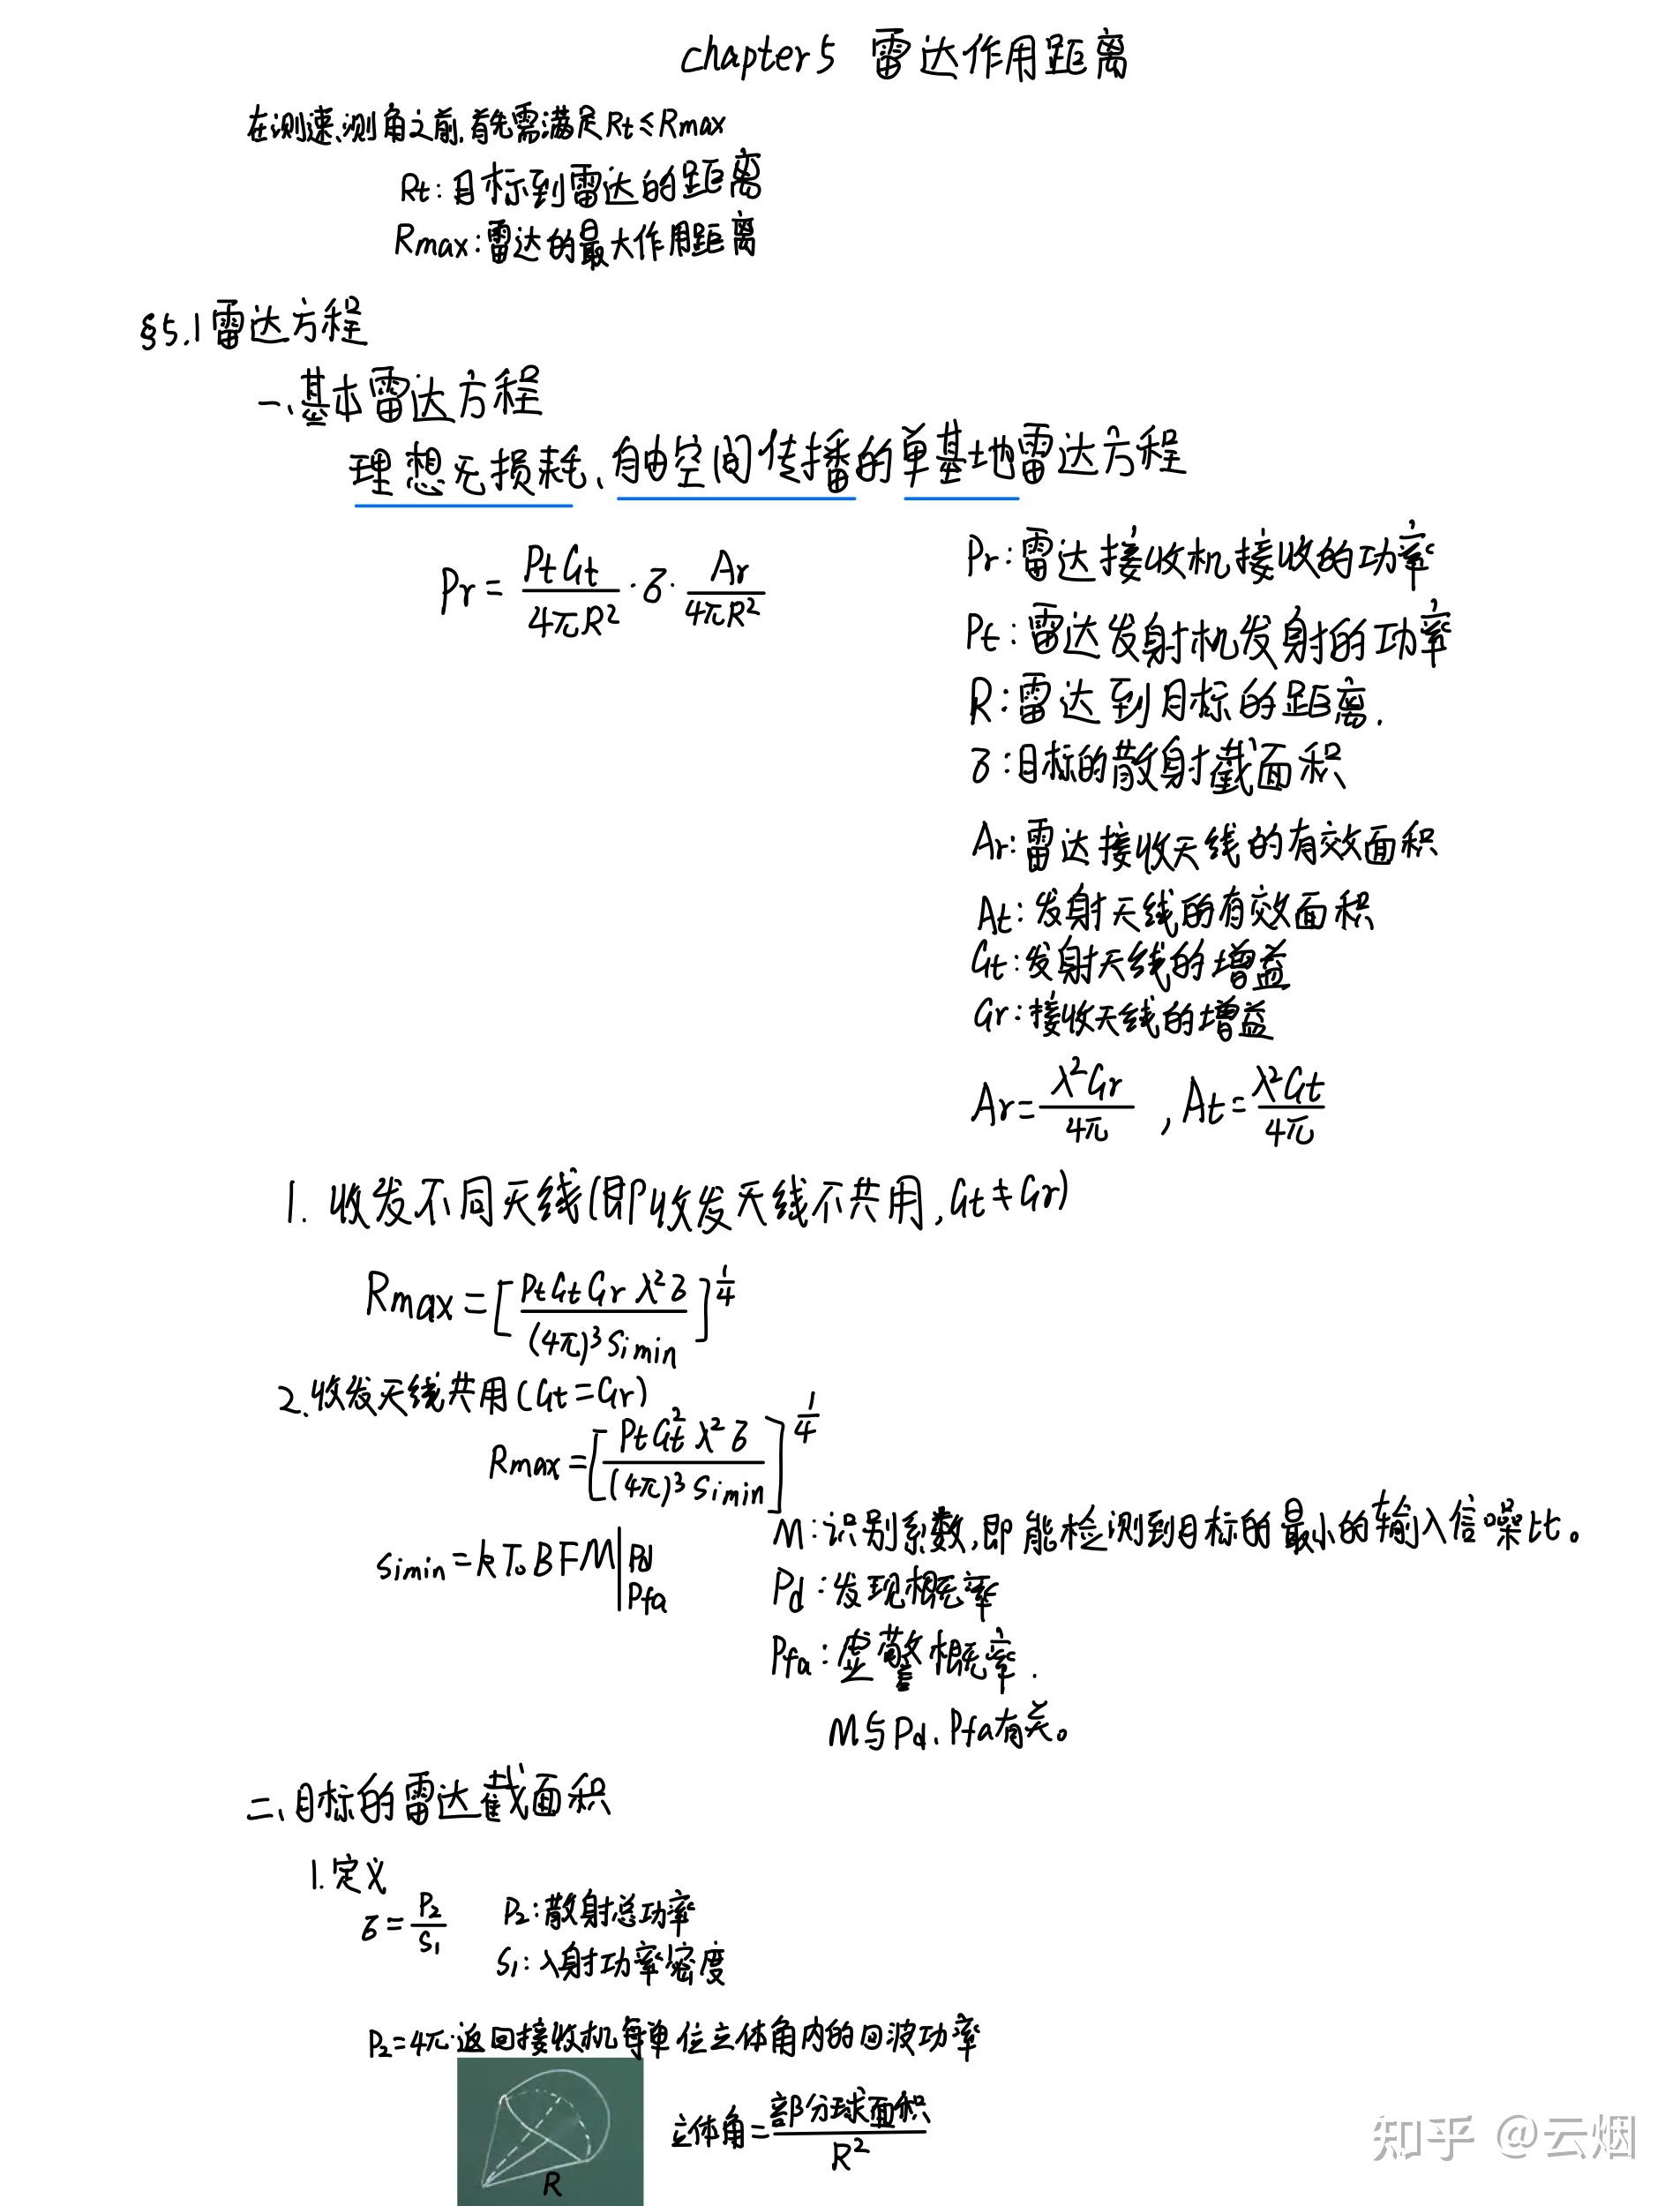 chapter5 雷达作用距离
在测速、测角之前,首先需满足Rt≤Rmax
Rt:目标到雷达的距离
Rmax:雷达的最大作用距离
§5.1雷达方程
一、基本雷达方程
理想无损耗、自由空间传播的单基地雷达方程
Pr = PtGt/4πR² · σ · Ar/4πR²
Pr:雷达接收机接收的功率
Pt:雷达发射机发射的功率
R:雷达到目标的距离.
σ:目标的散射截面积
Ar:雷达接收天线的有效面积
At:发射天线的有效面积
Gt:发射天线的增益
Gr:接收天线的增益
Ar=λ²Gr/4π , At=λ²Gt/4π
1. 收发不同天线(即收发天线不共用,Gt≠Gr)
Rmax=[PtGtGrλ²σ/(4π)³Simin]^1/4
2.收发天线共用(Gt=Gr)
Rmax=[PtGt²λ²σ/(4π)³Simin]^1/4
Simin=kT₀BFM|Pd Pfa
M:识别系数,即能检测到目标的最小的输入信噪比。
Pd:发现概率
Pfa:虚警概率.
M与Pd、Pfa有关。
二、目标的雷达截面积
1.定义
σ=P₂/S₁
P₂:散射总功率
S₁:入射功率密度
P₂=4π·返回接收机每单位立体角内的回波功率
R
立体角=部分球面积/R²
知乎 @云烟